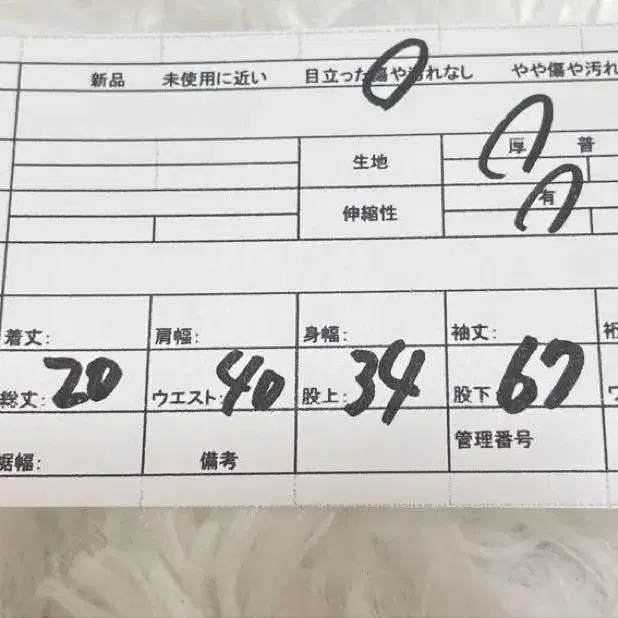 新品 未使用に近い 目立った傷や汚れなし やや傷や汚れ
生地 厚 普
伸縮性 有
着丈: 肩幅: 身幅: 袖丈: 裄
総丈: 20 ウエスト: 40 股上: 34 股下: 67 ワ
裾幅: 備考 管理番号